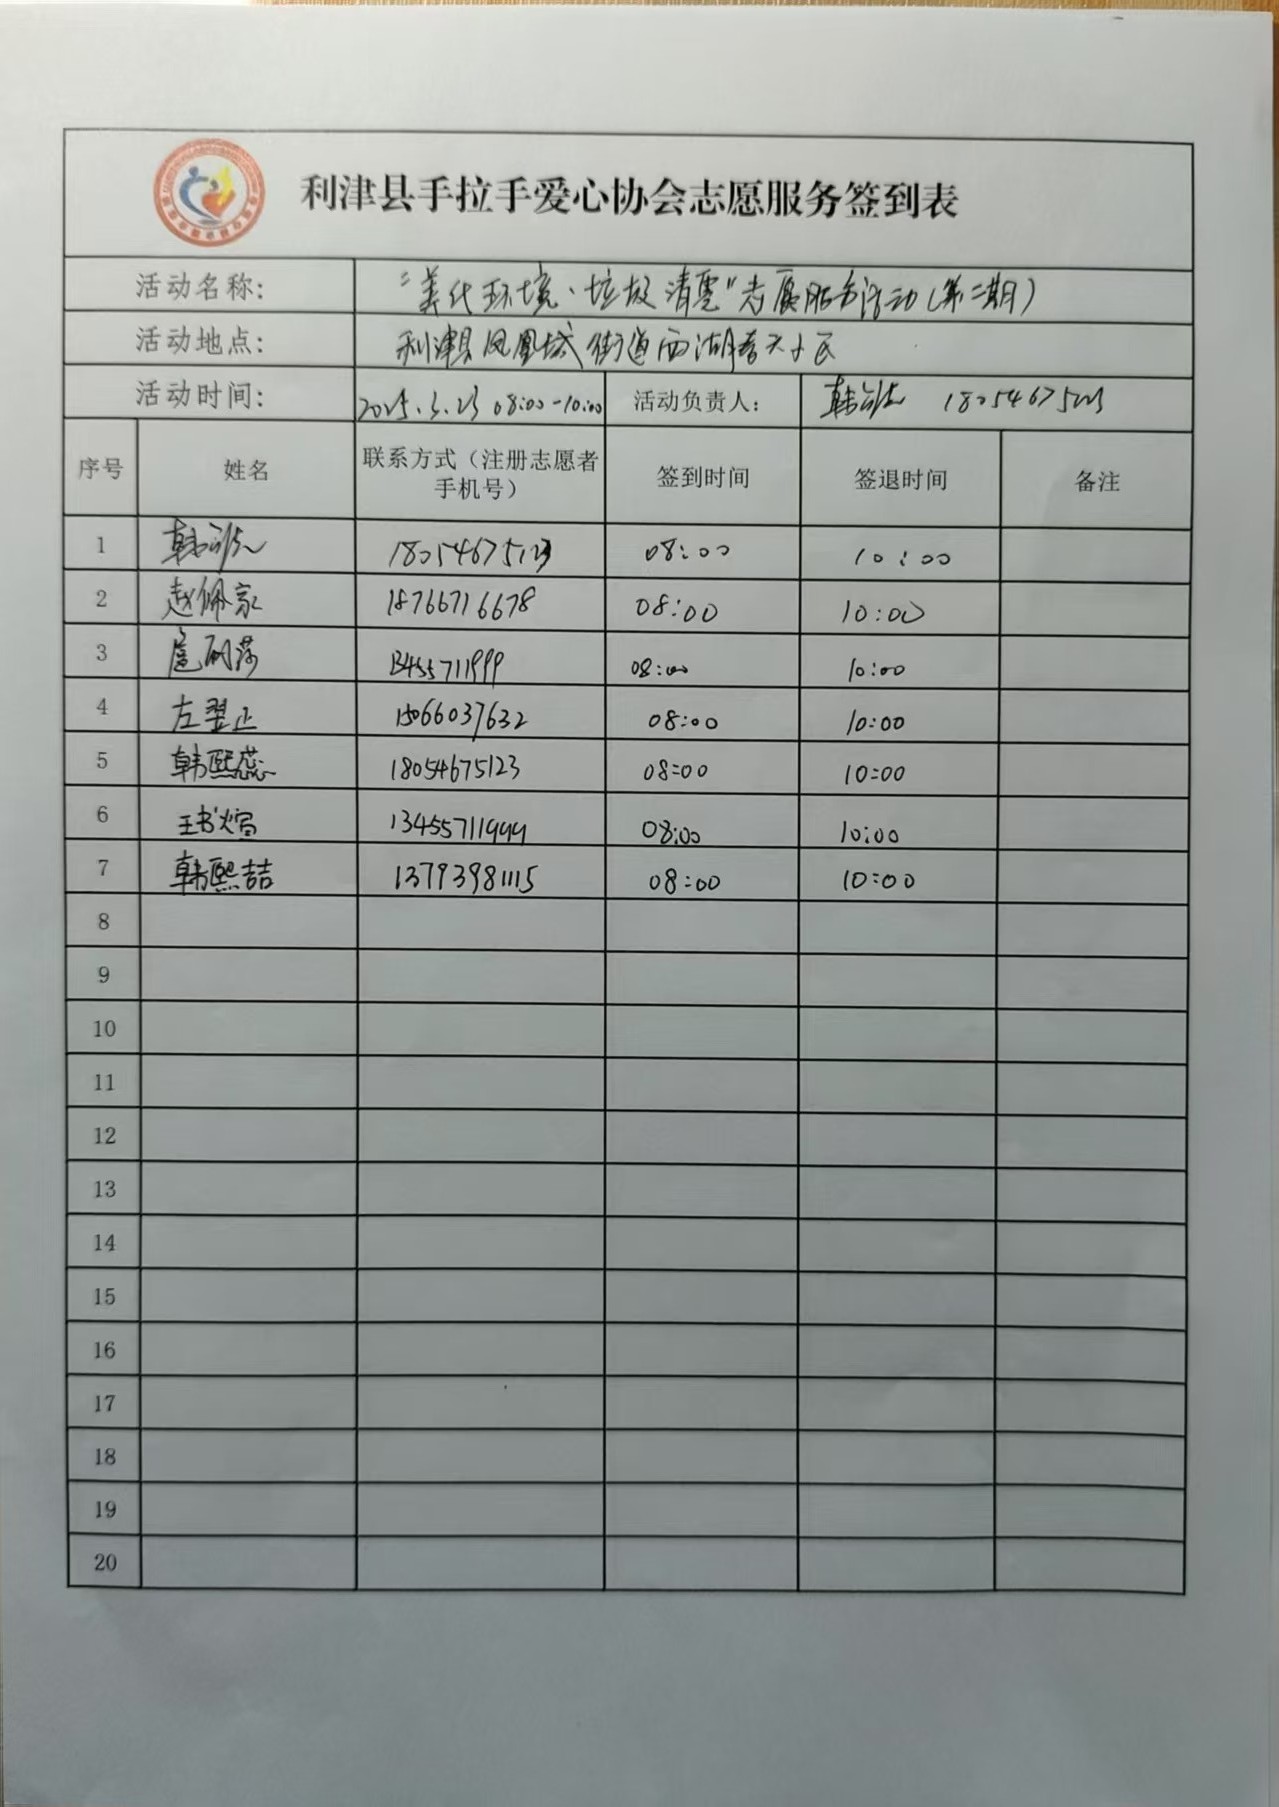 利津县手拉手爱心协会志愿服务签到表
活动名称： “美化环境·垃圾清理”志愿服务活动（第二期）
活动地点： 利津县凤凰城街道西湖春天小区
活动时间： 2025.3.23 08:00-10:00 活动负责人： 韩 18054675123
序号 姓名 联系方式（注册志愿者手机号） 签到时间 签退时间 备注
1 韩 18054675123 08:00 10:00
2 赵佩家 18766716678 08:00 10:00
3 13455711999 08:00 10:00
4 左翌正 15066037632 08:00 10:00
5 韩熙蕊 18054675123 08:00 10:00
6 王书煊 13455711999 08:00 10:00
7 韩熙喆 13793981115 08:00 10:00
8
9
10
11
12
13
14
15
16
17
18
19
20